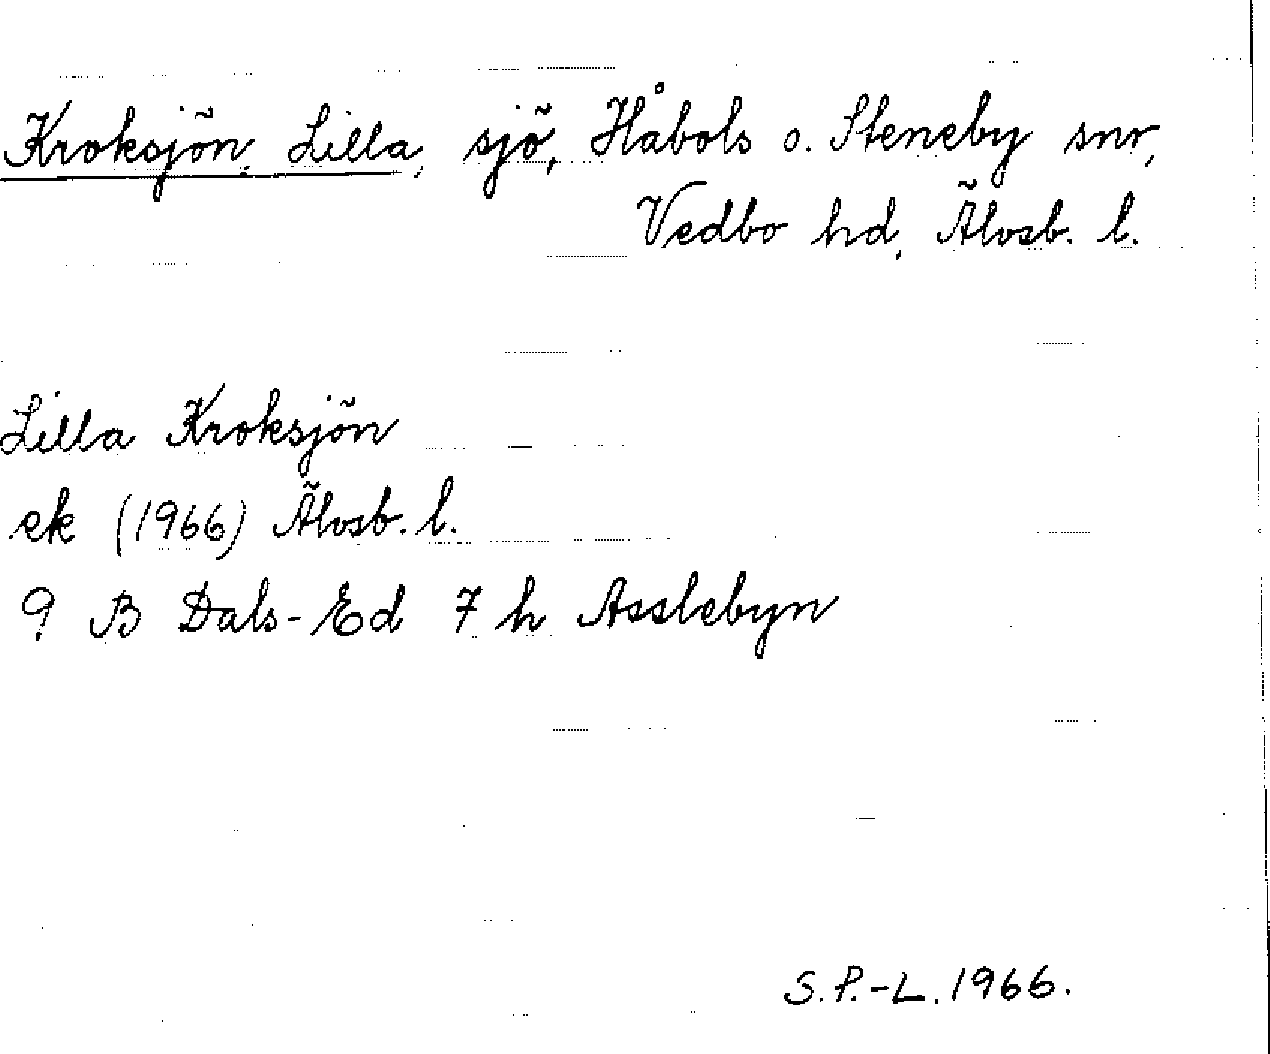 Kroksjön, Lilla, sjö, Håbols o. Steneby snr,
Vedbo hd, Älvsb. l.
Lilla Kroksjön
ek (1966) Älvsb. l.
9 B Dals-Ed 7 h Asslebyn
S.P.-L. 1966.